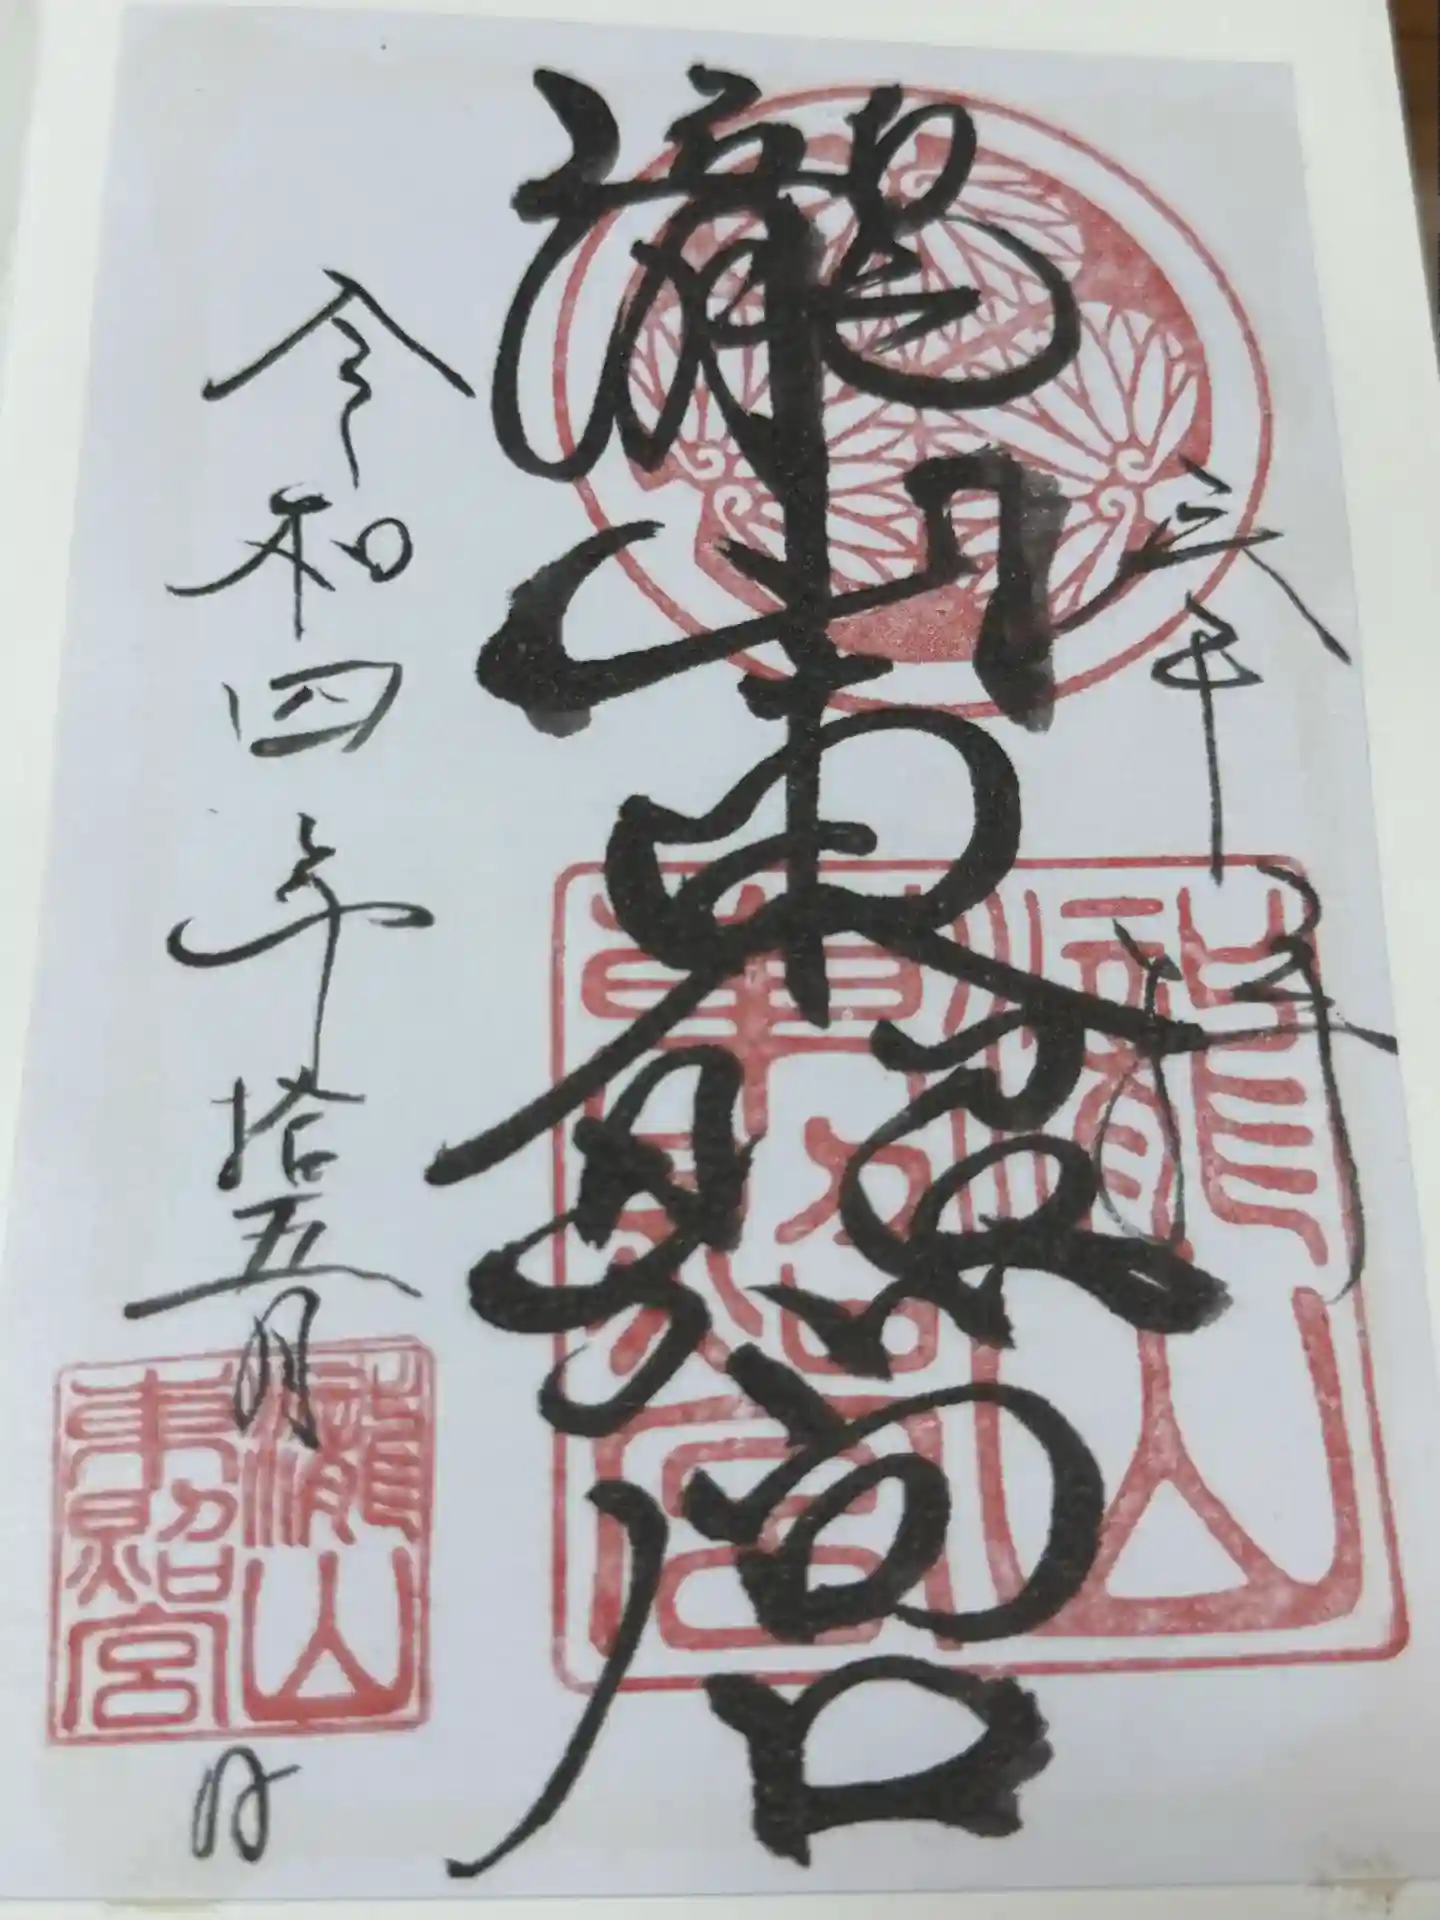 奉拝
瀧山東照宮
令和四年拾五月日
瀧山
東照宮
瀧山
東照宮